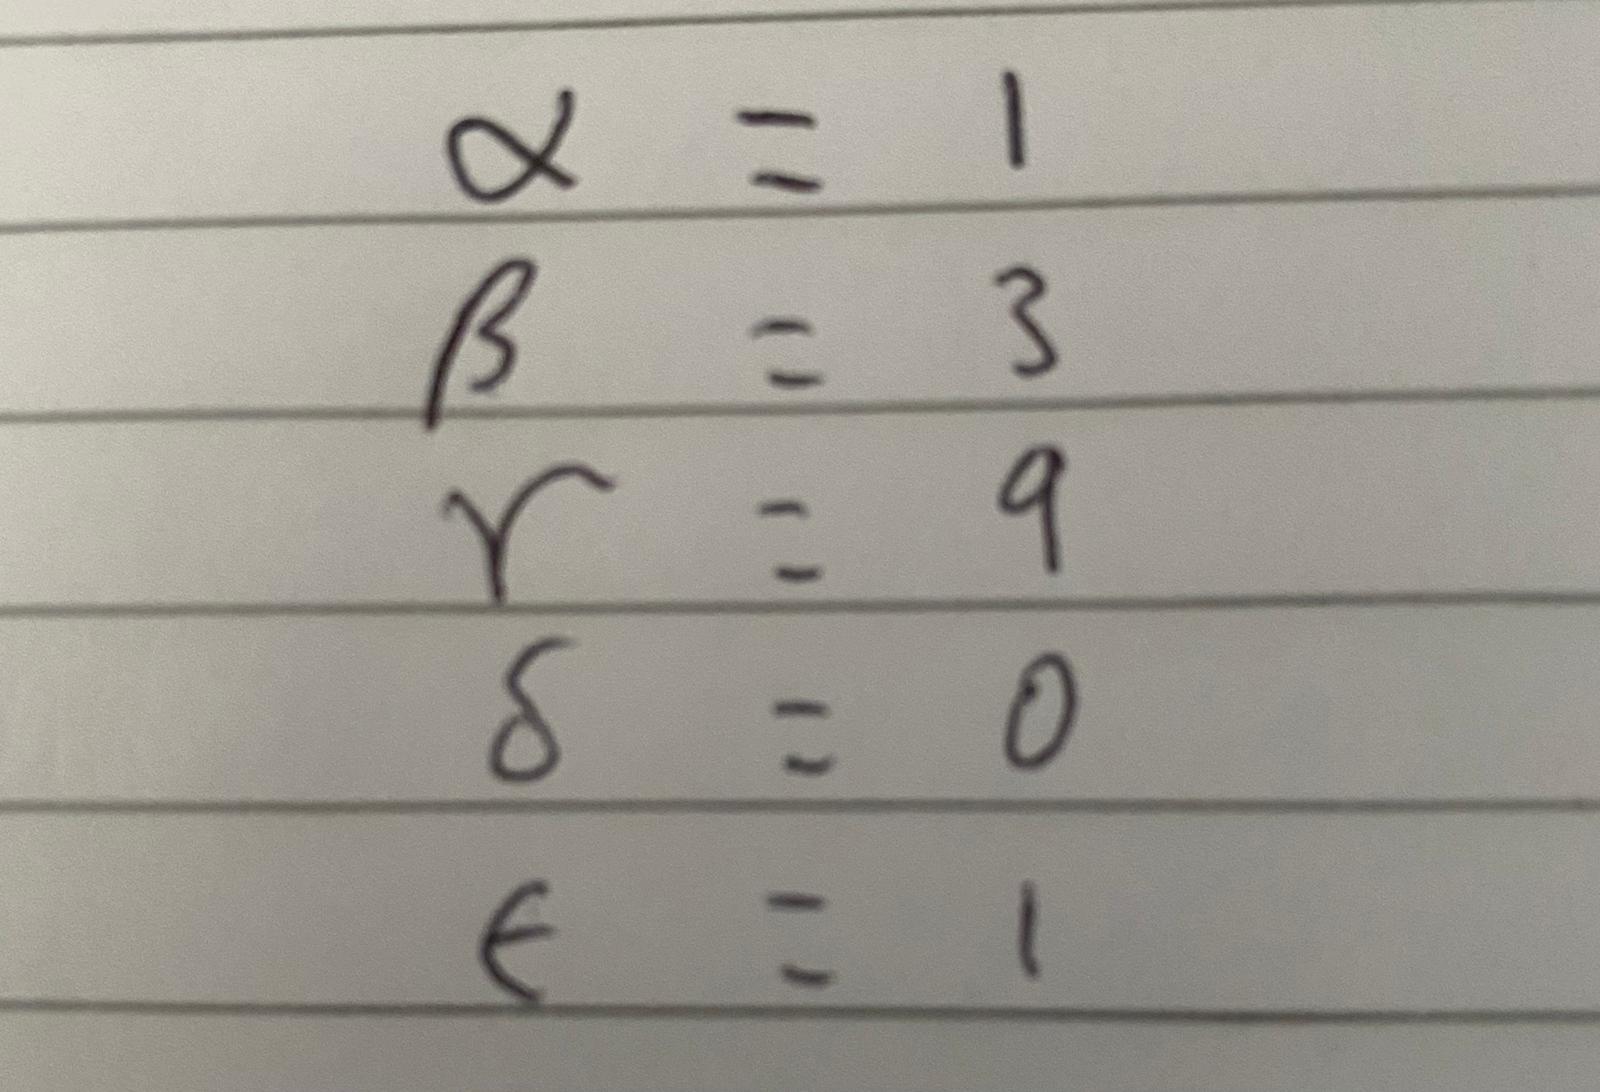 α = 1
β = 3
γ = 9
δ = 0
ϵ = 1